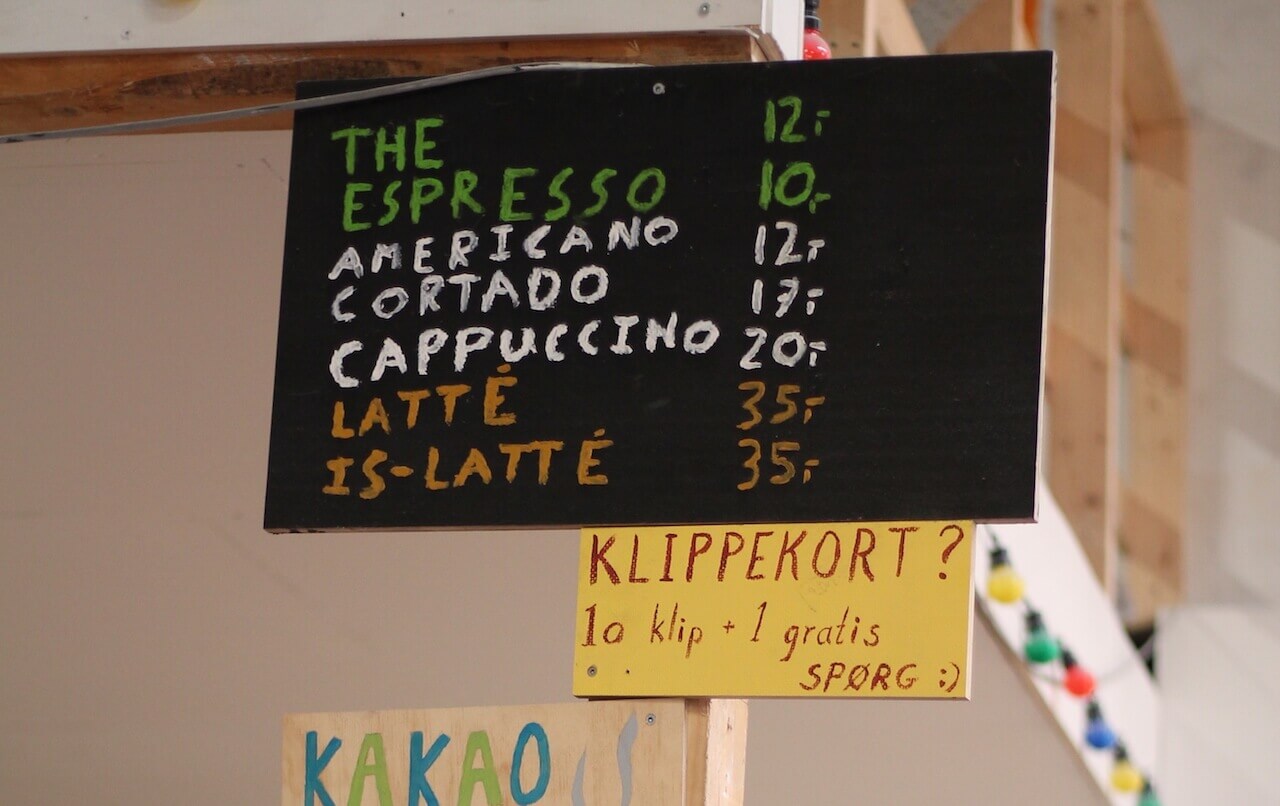 THE 12,-
ESPRESSO 10,-
AMERICANO 12,-
CORTADO 17,-
CAPPUCCINO 20,-
LATTÉ 35,-
IS-LATTÉ 35,-
KLIPPEKORT?
10 klip + 1 gratis
SPØRG :)
KAKAO